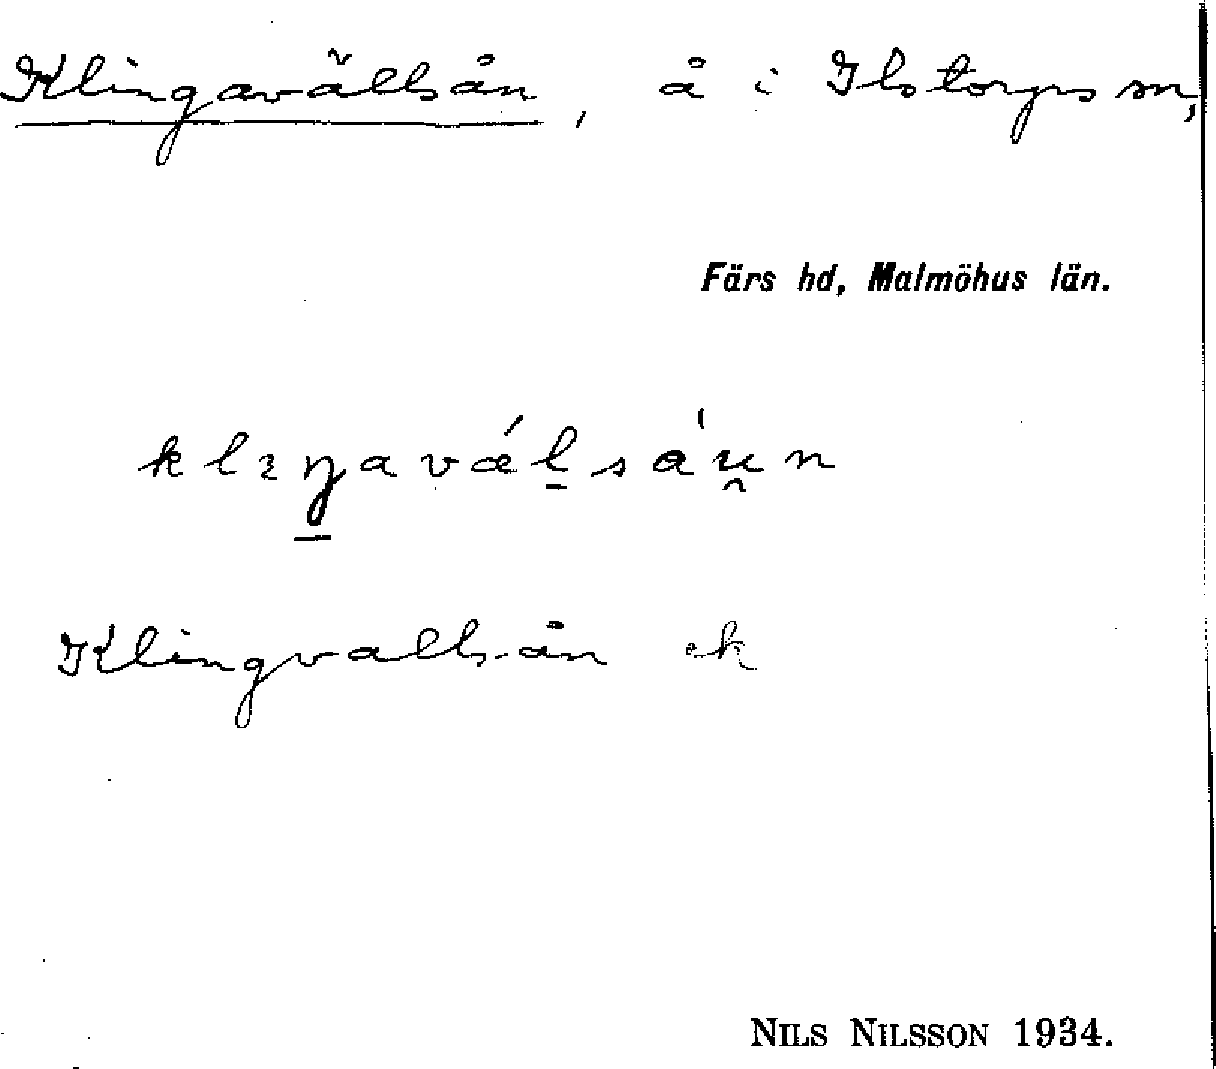 Klingavällsån, å i Ilstorps sn,
Färs hd, Malmöhus län.
klıŋavǽḻsáu̯n
Klingvallsån ek
NILS NILSSON 1934.